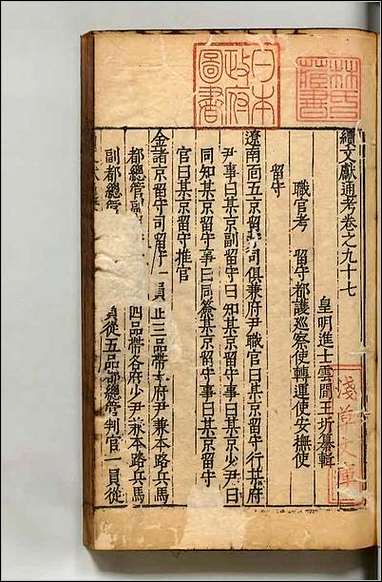 日本政府圖書
林氏藏書
淺草文庫
續文獻通考卷之九十七
皇明進士雲間王圻纂輯
職官考 留守都護巡察使轉運使安撫使
留守
遼南面五京留守司俱兼府尹職官曰某京留守行某府
尹事曰某京副留守曰知某京留守事曰某京少尹曰
同知某京留守事曰同簽某京留守事曰某京留守判
官曰某京留守推官
金諸京留守司留守一員正三品帶本府尹兼本路兵馬
都總管 四品帶本府少尹兼本路兵馬
副都總管 員從五品都總管判官一員從